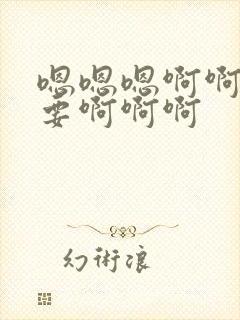 嗯嗯嗯啊啊
要啊啊啊
幻術浪